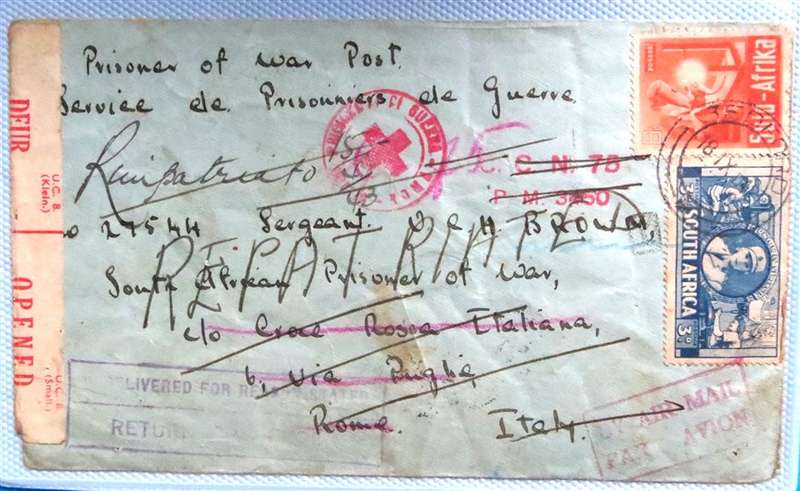 Prisoner of War Post.
Service de Prisonniers de Guerre
Rimpatriato 15
C. N. 75
P. M. 3450
No 27544 Sergeant D C H BROWN,
REPATRIATED
South African Prisoner of War,
c/o Croce Rossa Italiana,
6, Via Puglie,
Rome.
Italy.
LIVERED FOR REASON STATED
RETURN
BY AIR MAIL
PAR AVION
U.C. B
(Klein.)
OPENED
U.C. B
(Small.)
POSSEEL
Suid-Afrika
SOUTH AFRICA
3D